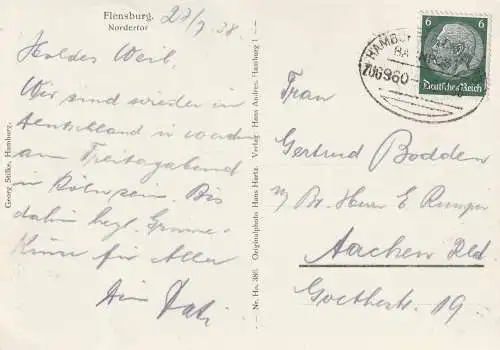 Flensburg.
Nordertor
27/7 38.
Holdes Weib.
Wir sind wieder in
Deutschland u werden
am Freitagabend
in Köln sein. Bis
dahin herzl. Grüsse
für Alle
Dein
Georg Stilke, Hamburg.
Nr. Ho. 380. Originalphoto Hans Hartz Verlag Hans Andres, Hamburg 1
ZUG960
6 6
Deutsches Reich
Frau
Gertrud Bodden
b/ Br. Herr E
Aachen Rld
Goethestr. 19